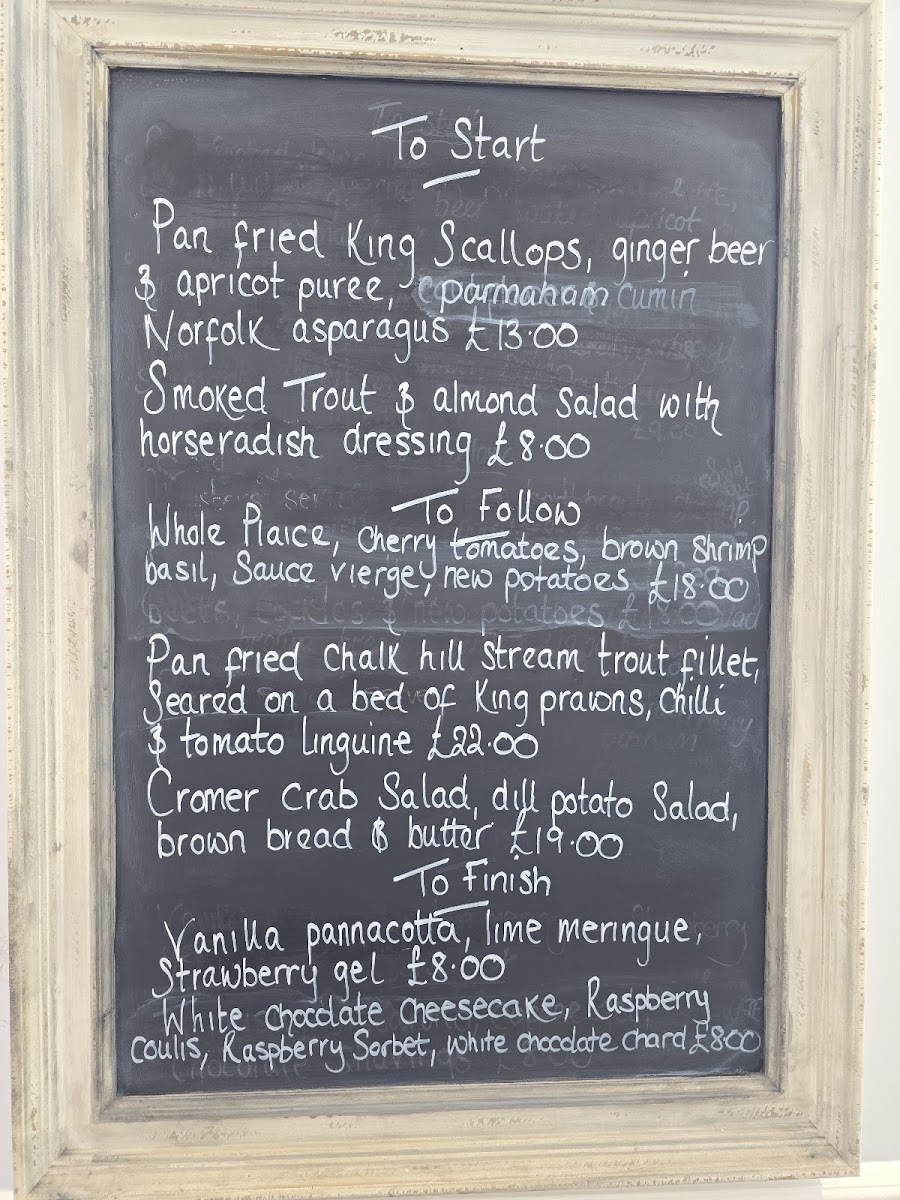 To Start
Pan fried King Scallops, ginger beer
& apricot puree, parmaham
Norfolk asparagus £13.00
Smoked Trout & almond Salad with
horseradish dressing £8.00
To Follow
Whole Plaice, cherry tomatoes, brown shrimp
basil, Sauce vierge, new potatoes £18.00
Pan fried Chalk hill Stream trout fillet,
Seared on a bed of King prawns, chilli
& tomato linguine £22.00
Cromer Crab Salad, dill potato Salad,
brown bread & butter £19.00
To Finish
Vanilla pannacotta, lime meringue,
Strawberry gel £8.00
White chocolate cheesecake, Raspberry
coulis, Raspberry Sorbet, white chocolate chard £8.00